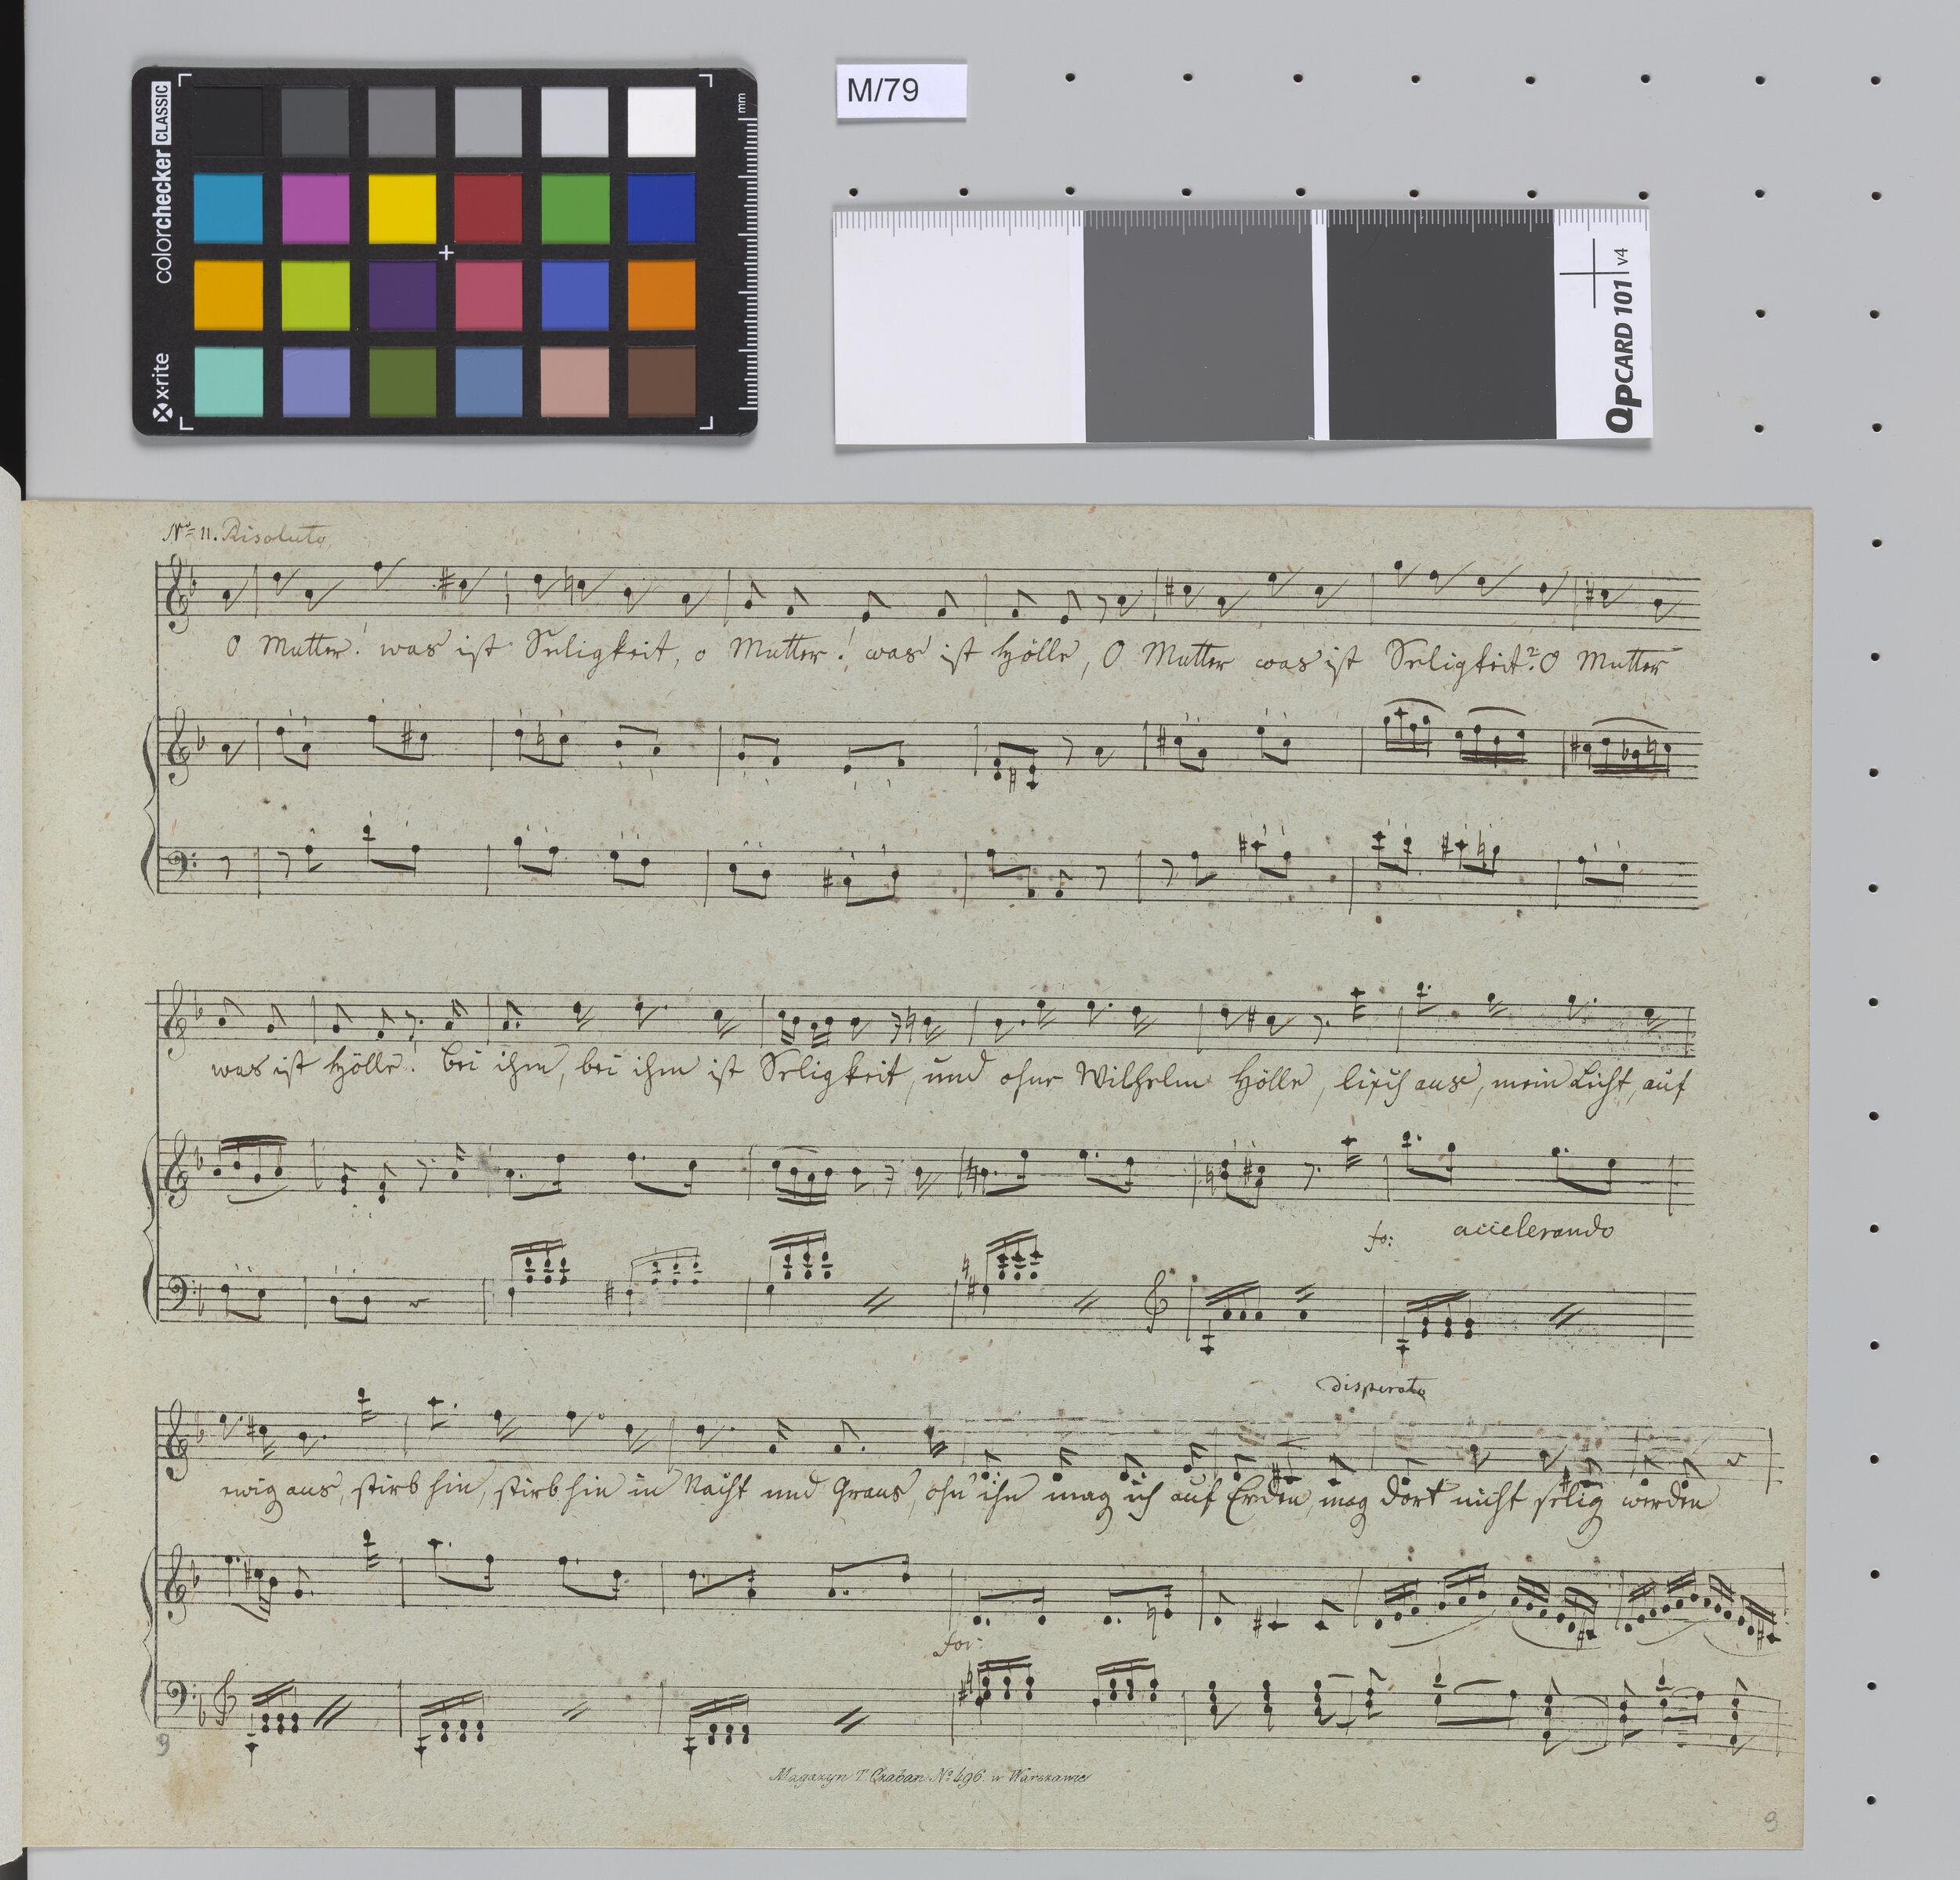 colorchecker CLASSIC
x-rite
mm
M/79
QPCARD 101 v4
No= 11. Risoluto
O Mutter! was ist Seligkeit, o Mutter! was ist Hölle, O Mutter was ist Seligkeit? O Mutter
was ist Hölle! bei ihm, bei ihm ist Seligkeit, und ohne Wilhelm Hölle, lisch aus, mein Licht, auf
fo: accelerando
disperato
ewig aus, stirb hin, stirb hin in Nacht und Graus, ohn' ihn mag ich auf Erden, mag dort nicht selig werden
for:
9
Magazyn T. Czaban No 496. w Warszawie
9